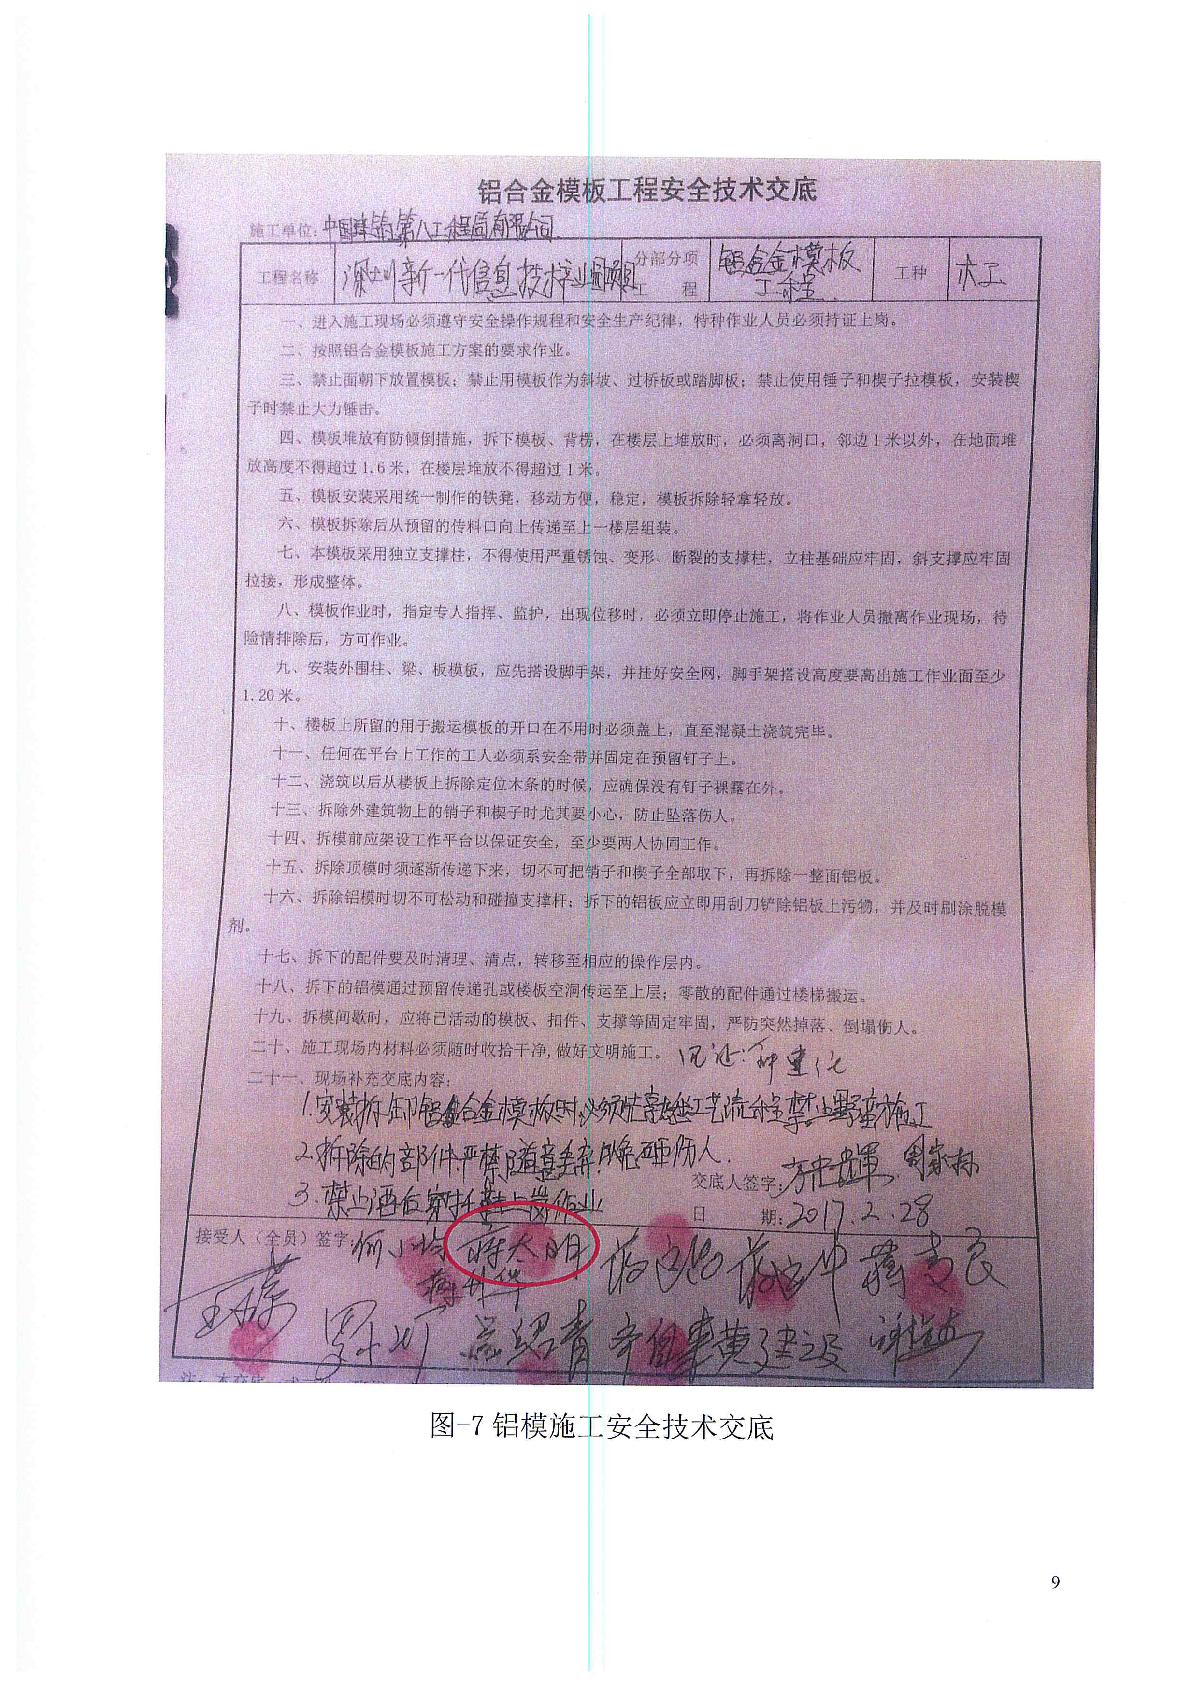 铝合金模板工程安全技术交底
施工单位:中国建筑第八工程局有限公司
工程名称 深圳新一代信息技术产业园项目 分部分项工程 铝合金模板工程 工种 木工
一、进入施工现场必须遵守安全操作规程和安全生产纪律，特种作业人员必须持证上岗。
二、按照铝合金模板施工方案的要求作业。
三、禁止面朝下放置模板；禁止用模板作为斜坡、过桥板或踏脚板；禁止使用锤子和楔子拉模板，安装楔
子时禁止大力锤击。
四、模板堆放有防倾倒措施，拆下模板、背楞，在楼层上堆放时，必须离洞口，邻边1米以外，在地面堆
放高度不得超过1.6米，在楼层堆放不得超过1米。
五、模板安装采用统一制作的铁凳，移动方便，稳定，模板拆除轻拿轻放。
六、模板拆除后从预留的传料口向上传递至上一楼层组装。
七、本模板采用独立支撑柱，不得使用严重锈蚀、变形、断裂的支撑柱，立柱基础应牢固，斜支撑应牢固
拉接，形成整体。
八、模板作业时，指定专人指挥、监护，出现位移时，必须立即停止施工，将作业人员撤离作业现场，待
险情排除后，方可作业。
九、安装外围柱、梁、板模板，应先搭设脚手架，并挂好安全网，脚手架搭设高度要高出施工作业面至少
1.20米。
十、楼板上所留的用于搬运模板的开口在不用时必须盖上，直至混凝土浇筑完毕。
十一、任何在平台上工作的工人必须系安全带并固定在预留钉子上。
十二、浇筑以后从楼板上拆除定位木条的时候，应确保没有钉子裸露在外。
十三、拆除外建筑物上的销子和楔子时尤其要小心，防止坠落伤人。
十四、拆模前应架设工作平台以保证安全，至少要两人协同工作。
十五、拆除顶模时须逐渐传递下来，切不可把销子和楔子全部取下，再拆除一整面铝板。
十六、拆除铝模时切不可松动和碰撞支撑杆；拆下的铝板应立即用刮刀铲除铝板上污物，并及时刷涂脱模
剂。
十七、拆下的配件要及时清理、清点，转移至相应的操作层内。
十八、拆下的铝模通过预留传递孔或楼板空洞传运至上层；零散的配件通过楼梯搬运。
十九、拆模间歇时，应将已活动的模板、扣件、支撑等固定牢固，严防突然掉落、倒塌伤人。
二十、施工现场内材料必须随时收拾干净,做好文明施工。
二十一、现场补充交底内容：
1.安装拆卸铝合金模板时,必须工艺流程禁止野蛮施工
2.拆除的部件严禁随意丢弃以免砸伤人.
3.禁止酒后穿拖鞋上岗作业
交底人签字:
日 期:2017.2.28
接受人（全员）签字: 蒋太明
图-7 铝模施工安全技术交底
9